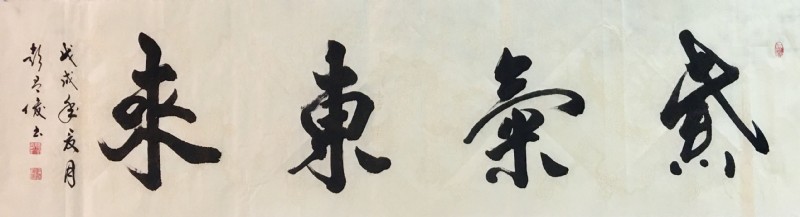 紫氣東來
戊戌年夏月
彭君俊书